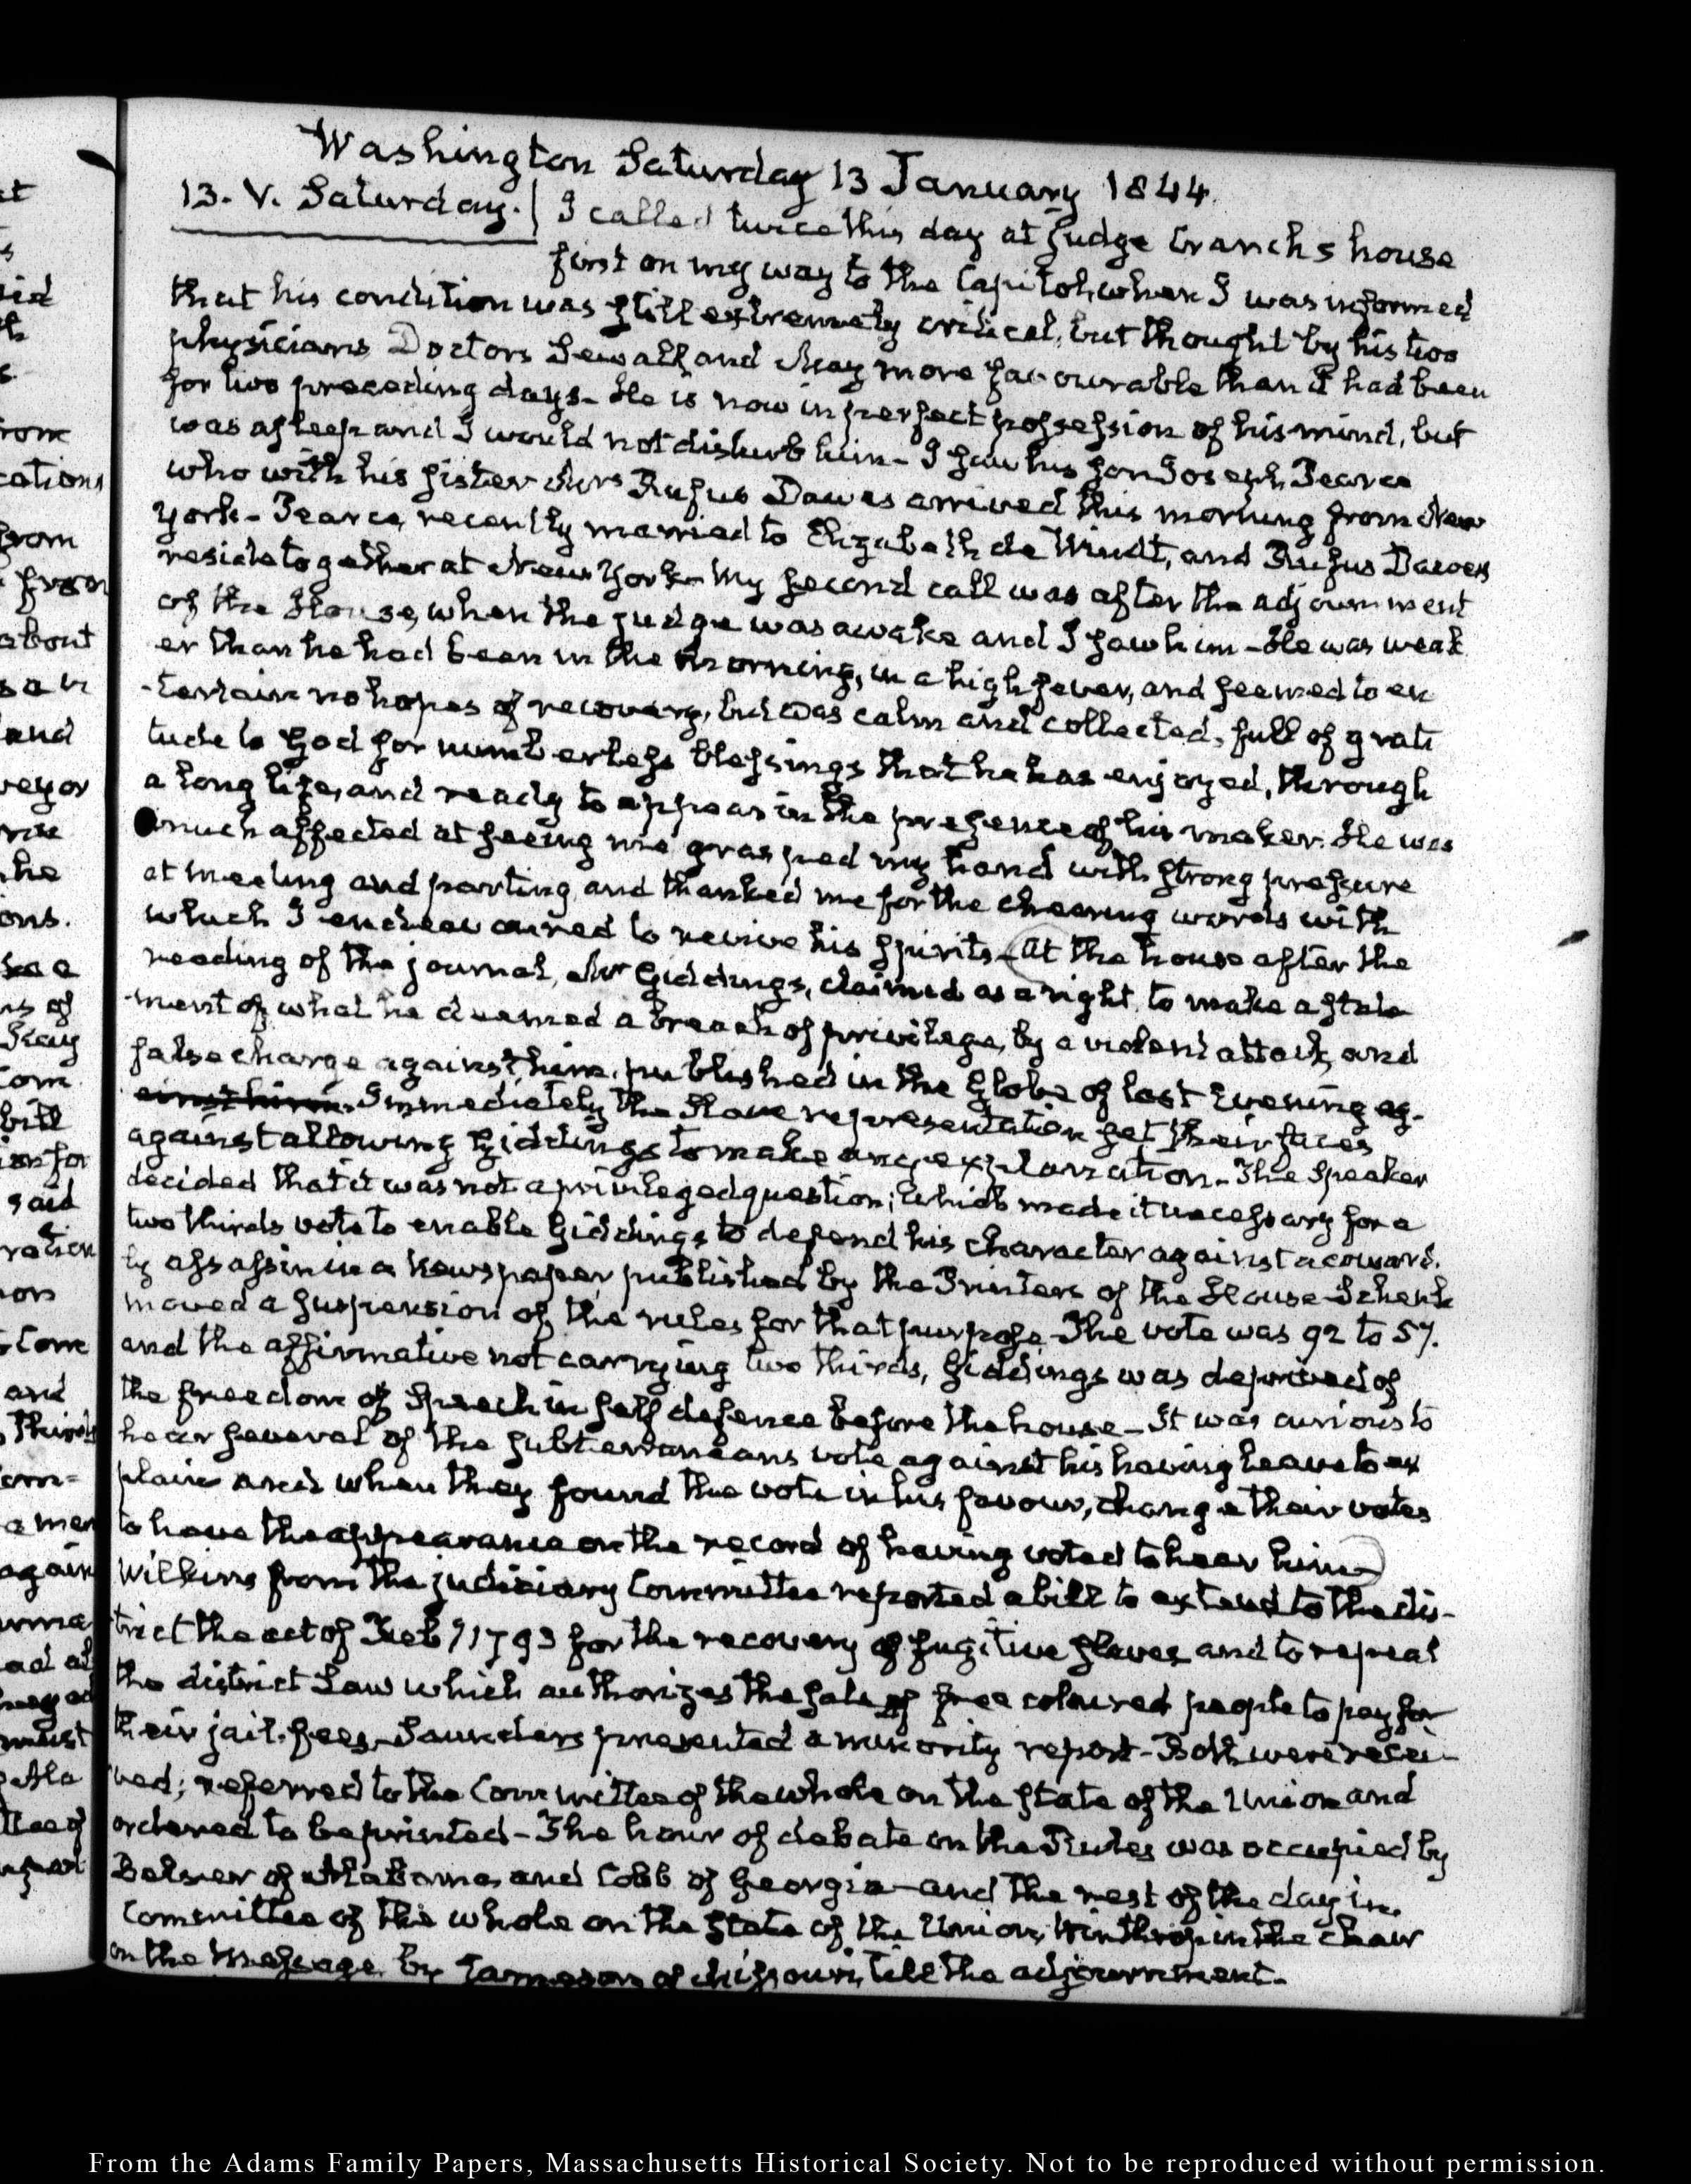 Washington Saturday 13 January 1844.
13. V. Saturday. I called twice this day at Judge Cranch's house
first on my way to the Capitol, when I was informed
that his condition was still extremely critical, but thought by his two
physicians Doctors Sewall and May more favourable than it had been
for two preceding days. He is now in perfect possession of his mind, but
was asleep and I would not disturb him. I saw his son Joseph Pearce
who with his sister Mrs Rufus Dawes arrived this morning from New
York. Pearce, recently married to Elizabeth de Windt, and Rufus Dawes
reside together at New York. My second call was after the adjournment
of the House, when the judge was awake and I saw him. He was weak
er than he had been in the morning, in a high fever, and seemed to en
tertain no hopes of recovery, but was calm and collected, full of grati
tude to God for numberless blessings that he has enjoyed, through
a long life, and ready to appear in the presence of his maker. He was
much affected at seeing me grasped my hand with strong pressure
at meeting and parting, and thanked me for the cheering words with
which I endeavoured to revive his spirits. At the house after the
reading of the journal, Mr Giddings, claimed as a right to make a state
ment of what he deemed a breach of privilege, by a violent attack, and
false charge against him, published in the Globe of last Evening ag-
ainst him. Immediately the Slave representation set their faces
against allowing Giddings to make any explanation. The Speaker
decided that it was not a privileged question; which made it necessary for a
two thirds vote to enable Giddings to defend his character against a coward.
ly assassin in a Newspaper published by the Printers of the House. Schenk
moved a suspension of the rules for that purpose. The vote was 92 to 57.
and the affirmative not carrying two thirds, Giddings was deprived of
the freedom of Speech in self defence before the house. It was curious to
hear several of the subterraneans vote against his having leave to ex
plain and when they found the vote in his favour, change their votes
to have the appearance on the record of having voted to hear him.
Wilkins from the judiciary Committee reported a bill to extend to the dis-
trict the act of Feby 1793 for the recovery of fugitive slaves and to repeal
the district Law which authorizes the sale of free coloured people to pay for
their jail. fees. Saunders presented a minority report. Both were recei-
ved; referred to the Committee of the whole on the state of the Union and
ordered to be printed. The hour of debate on the Rules was occupied by
Belser of Alabama and Cobb of Georgia and the rest of the day in
Committee of the whole on the state of the Union, Winthrop in the chair
on the message by Jameson of Missouri, till the adjournment.
From the Adams Family Papers, Massachusetts Historical Society. Not to be reproduced without permission.